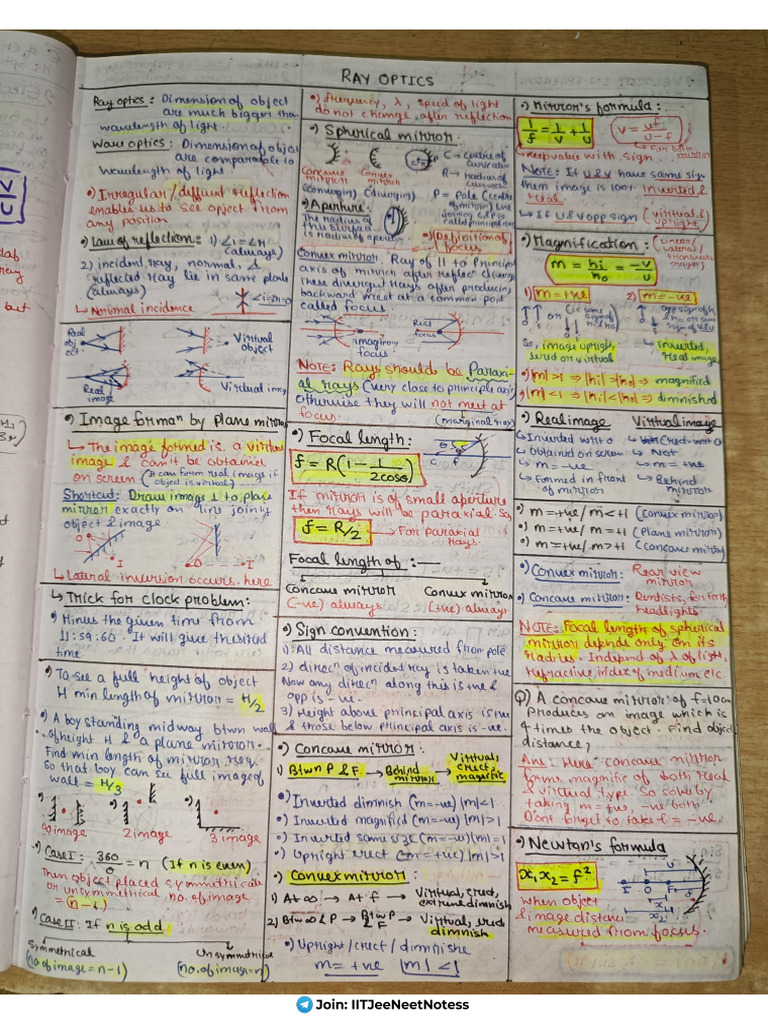 RAY OPTICS
Ray optics : Dimension of object
are much bigger than
wavelength of light
Wave optics : Dimension of object
are comparable to
wavelength of light
•) Irregular / diffused reflection
enables us to see object from
any position
•) Law of reflection : 1) ∠i = ∠r
(always)
2) incident ray, normal, &
reflected ray lie in same plane
(always)
↳ Normal incidence
∠i=∠r=0
Real
obj
ect
Virtual
object
Real
image
Virtual image
•) Image forman by plane mirror
↳ The image formed is a virtual
image & can't be obtained
on screen (It can form real image if
object is virtual)
Shortcut: Draw image ⊥ to plane
mirror exactly on line joining
object & image
O
I
O
I
↳ Lateral inversion occurs here
↳ Trick for clock problem:
•) Minus the given time from
11:59:60 . It will give the desired
time
•) To see a full height of object
H min length of mirror = H/2
•) A boy standing midway btwn wall
of height H & a plane mirror.
Find min length of mirror req.
so that boy can see full image of
wall = H/3
∞ image
2 image
3 image
•) Case I : 360/θ = n (If n is even)
Then object placed symmetrical
or unsymmetrical no. of image
= (n-1)
•) Case II : If n is odd
Symmetrical
(no. of image = n-1)
Unsymmetrical
(no. of image = n)
•) frequency, λ, speed of light
do not change after reflection
•) Spherical mirror.
Concave
mirror
(converging)
Convex
mirror
(diverging)
C → centre of
curvature
R → radius of
curvature
P = Pole (centre
of mirror) line
joining C & P is
called principal axis
•) Aperture:
The radius of
this surface
is radius of aperture
•) Definition of
focus
Convex mirror: Ray of || to Principal
axis of mirror after reflecn diverge
These divergent rays after producing
backward meet at a common point
called focus
imaginary
focus
Real
focus
NOTE: Rays should be Paraxi-
al rays (very close to principle axis)
otherwise they will not meet at
focus.
(marginal rays)
•) Focal length:
f = R(1 - 1/2cosθ)
θ
C
F
If mirror is of small aperture
then rays will be paraxial. So,
f = R/2 → For paraxial
rays.
Focal length of : —
Concave mirror
(-ve) always
Convex mirror
(+ve) always
•) Sign convention :
1) All distance measured from pole
2) direcn of incident ray is taken +ve
Now any direcn along this is +ve &
opp is -ve.
3) Height above principal axis is +ve
& those below principal axis is -ve.
•) Concave mirror :
1) Btwn P & F → Behind
mirror → Virtual,
erect,
magnific
•) Inverted diminish (m=-ve) |m|<1
•) Inverted magnified (m=-ve) |m|>1
•) Inverted same size (m=-ve) |m|=1
•) Upright erect (m=+ve) |m|>1
•) Convex mirror :
1) At ∞ → At f → Virtual, erect,
extreme diminish
2) Btw ∞ & P → Btw P
F → Virtual, erect
diminish
•) Upright / erect / diminishe
m = +ve |m| < 1
•) Mirror's formula :
1/f = 1/v + 1/u
v = uf/u-f
↳ For both
mirror
↳ keep value with sign
NOTE: If u & v have same sign
then image is 100% inverted &
real
↳ If u & v opp sign (virtual &
upright)
•) Magnification :
m = hi/ho = -v/u
1) m = +ve
2) m = -ve
So, image upright,
erect or virtual
↳ Inverted,
real image
•) |m|>1 ⇒ |hi|>|ho| ⇒ magnified
•) |m|<1 ⇒ |hi|<|ho| ⇒ diminished
•) Real image
↳ Inverted w.r.t O
↳ Obtained on screen
↳ m = -ve
↳ Formed in front
of mirror
Virtual image
↳ Erect w.r.t O
↳ Not
↳ m = +ve
↳ Behind
mirror
•) m = +ve / m < +1 (Convex mirror)
•) m = +ve / m = +1 (plane mirror)
•) m = +ve / m > +1 (concave mirror)
•) Convex mirror: Rear view
mirror
•) Concave mirror: Dentists, for torch,
headlights
NOTE: Focal length of spherical
mirror depends only on its
radius. Independ of λ of light,
refractive index of medium etc
Q) A concave mirror of f=10cm
Produces an image which is
4 times the object. Find object
distance,
Ans: Here concave mirror
forms magnific of both real
& virtual type. So solve by
taking m = +ve, -ve both
Dont forget to take f = -ve
•) Newton's formula
x₁x₂ = f²
when object
& image distance
measured from focus.
Join: IITJeeNeetNotess